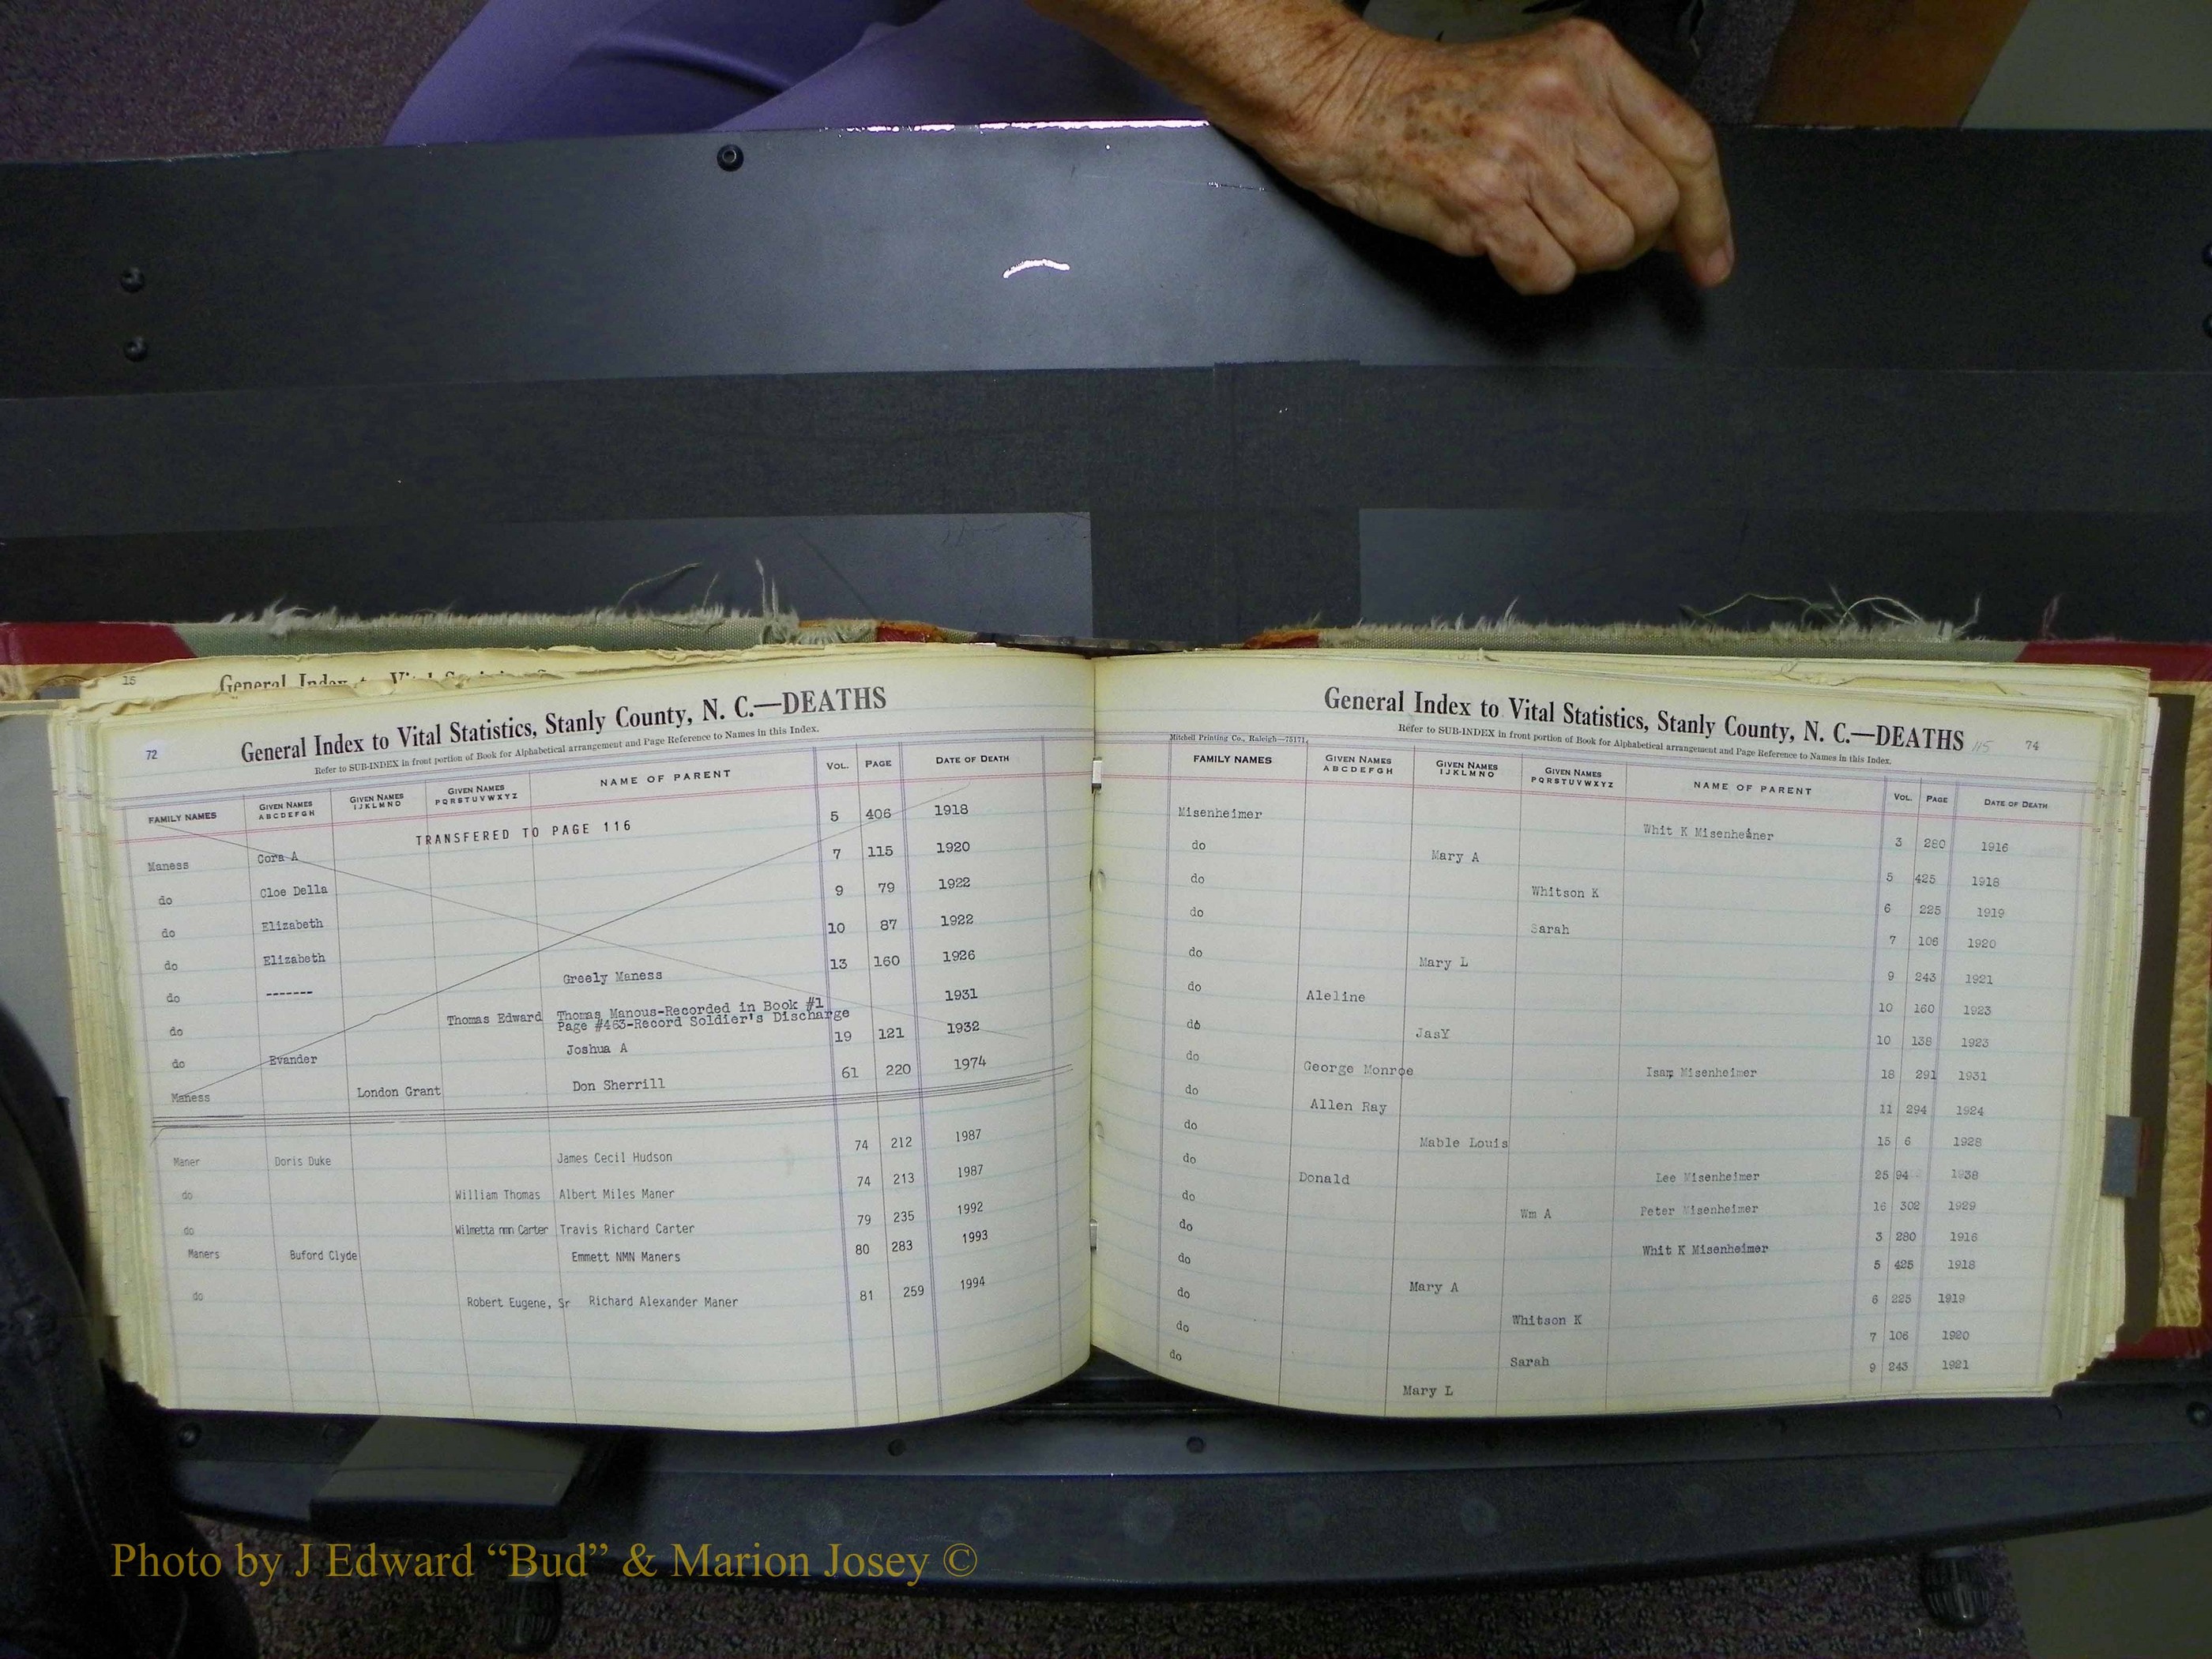 15
General Index to Vital Statistics
72
General Index to Vital Statistics, Stanly County, N. C.—DEATHS
Refer to SUB-INDEX in front portion of Book for Alphabetical arrangement and Page Reference to Names in this Index.
FAMILY NAMES GIVEN NAMES ABCDEFGH GIVEN NAMES IJKLMNO GIVEN NAMES PQRSTUVWXYZ NAME OF PARENT VOL. PAGE DATE OF DEATH
TRANSFERED TO PAGE 116
Maness Cora A 5 406 1918
do Cloe Della 7 115 1920
do Elizabeth 9 79 1922
do Elizabeth 10 87 1922
do ------- Greely Maness 13 160 1926
do Thomas Edward Thomas Manous-Recorded in Book #1 1931
Page #463-Record Soldier's Discharge
do Evander Joshua A 19 121 1932
Maness London Grant Don Sherrill 61 220 1974
Maner Doris Duke James Cecil Hudson 74 212 1987
do William Thomas Albert Miles Maner 74 213 1987
do Wilmetta nmn Carter Travis Richard Carter 79 235 1992
Maners Buford Clyde Emmett NMN Maners 80 283 1993
do Robert Eugene, Sr Richard Alexander Maner 81 259 1994
General Index to Vital Statistics, Stanly County, N. C.—DEATHS 115 74
Refer to SUB-INDEX in front portion of Book for Alphabetical arrangement and Page Reference to Names in this Index.
Mitchell Printing Co., Raleigh—75171
FAMILY NAMES GIVEN NAMES ABCDEFGH GIVEN NAMES IJKLMNO GIVEN NAMES PQRSTUVWXYZ NAME OF PARENT VOL. PAGE DATE OF DEATH
Misenheimer Whit K Misenheimer 3 280 1916
do Mary A 5 425 1918
do Whitson K 6 225 1919
do Sarah 7 106 1920
do Mary L 9 243 1921
do Aleline 10 160 1923
do JasY 10 138 1923
do George Monroe Isam Misenheimer 18 291 1931
do Allen Ray 11 294 1924
do Mable Louis 15 6 1928
do Donald Lee Misenheimer 25 94 1938
do Wm A Peter Misenheimer 16 302 1929
do Whit K Misenheimer 3 280 1916
do Mary A 5 425 1918
do Whitson K 6 225 1919
do Sarah 7 106 1920
do Mary L 9 243 1921
Photo by J Edward “Bud” & Marion Josey ©